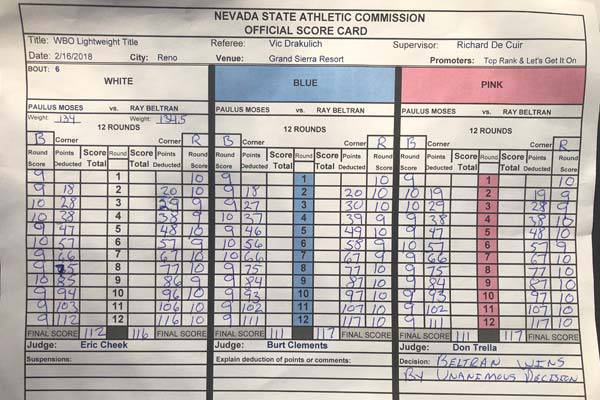 NEVADA STATE ATHLETIC COMMISSION
OFFICIAL SCORE CARD
Title: WBO Lightweight Title Referee: Vic Drakulich Supervisor: Richard De Cuir
Date: 2/16/2018 City: Reno Venue: Grand Sierra Resort Promoters: Top Rank & Let's Get It On
BOUT: 6
WHITE BLUE PINK
PAULUS MOSES vs. RAY BELTRAN PAULUS MOSES vs. RAY BELTRAN PAULUS MOSES vs. RAY BELTRAN
Weight: 134 Weight: 134.5
12 ROUNDS 12 ROUNDS 12 ROUNDS
B Corner Corner R B Corner Corner R B Corner Corner R
Round Points Score Round Score Points Round Round Points Score Round Score Points Round Round Points Score Round Score Points Round
Score Deducted Total Total Deducted Score Score Deducted Total Total Deducted Score Score Deducted Total Total Deducted Score
9 1 10 9 1 10 9 1 10
9 18 2 20 10 9 18 2 20 10 10 19 2 19 9
10 28 3 29 9 9 27 3 30 10 10 29 3 28 9
10 38 4 38 9 10 37 4 39 9 9 38 4 38 10
9 47 5 48 10 9 46 5 49 10 9 47 5 48 10
10 57 6 57 9 10 56 6 58 9 10 57 6 57 9
9 66 7 67 10 10 66 7 67 9 9 66 7 67 10
9 75 8 77 10 9 75 8 77 10 9 75 8 77 10
10 85 9 86 9 9 84 9 87 10 9 84 9 87 10
9 94 10 96 10 9 93 10 97 10 9 93 10 97 10
9 103 11 106 10 9 102 11 107 10 9 102 11 107 10
9 112 12 116 10 9 111 12 117 10 9 111 12 117 10
FINAL SCORE 112 116 FINAL SCORE FINAL SCORE 111 117 FINAL SCORE FINAL SCORE 111 117 FINAL SCORE
Judge: Eric Cheek Judge: Burt Clements Judge: Don Trella
Suspensions: Explain deduction of points or comments: Decision: BELTRAN WINS
BY UNANIMOUS DECISION